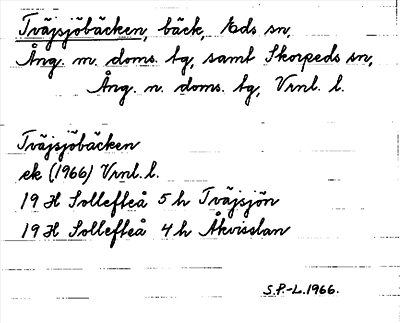 Tväjsjöbäcken, bäck, Eds sn,
Ång. m. doms. tg, samt Skorpeds sn,
Ång. n. doms. tg, Vrnl. l.
Tväjsjöbäcken
ek (1966) Vrnl. l.
19 H Sollefteå 5 h Tväjsjön
19 H Sollefteå 4 h Åkvisslan
S.P.-L.1966.